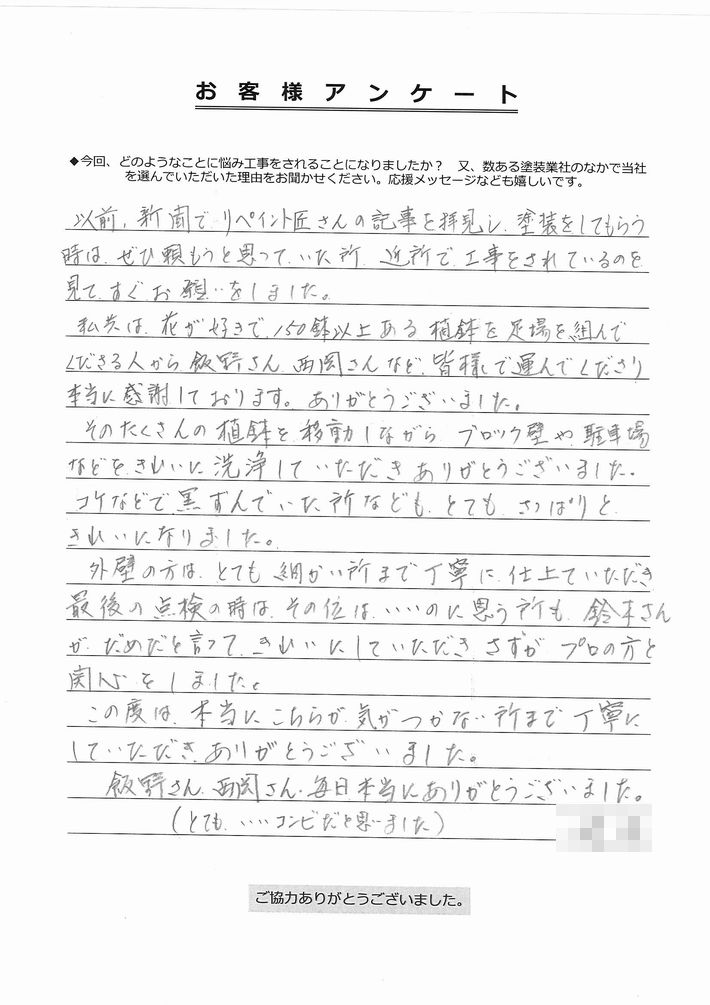 お客様アンケート
◆今回、どのようなことに悩み工事をされることになりましたか？ 又、数ある塗装業社のなかで当社
を選んでいただいた理由をお聞かせください。応援メッセージなども嬉しいです。
以前、新聞で、リペイント匠さんの記事を拝見し、塗装をしてもらう
時は、ぜひ頼もうと思って、いた所、近所で、工事をされているのを
見て、すぐお願いをしました。
私共は、花が好きで、150鉢以上ある植鉢を足場を組んで
くださる人から飯野さん、西岡さんなど、皆様で運んでくださり
本当に感謝しております。ありがとうございました。
そのたくさんの植鉢を移動しながら ブロック壁や、駐車場
などをきれいに洗浄していただきありがとうございました。
コケなどで黒ずんでいた所なども、とても、さっぱりと
きれいになりました。
外壁の方は、とても細かい所まで丁寧に仕上ていただき
最後の点検の時は、その位は、いいのに思う所も、鈴木さん
が、だめだと言って、きれいにしていただき、さすが、プロの方と
関心をしました。
この度は、本当にこちらが気がつかない所まで丁寧に
していただき、ありがとうございました。
飯野さん、西岡さん、毎日本当にありがとうございました。
（とても、いいコンビだと思いました）
ご協力ありがとうございました。